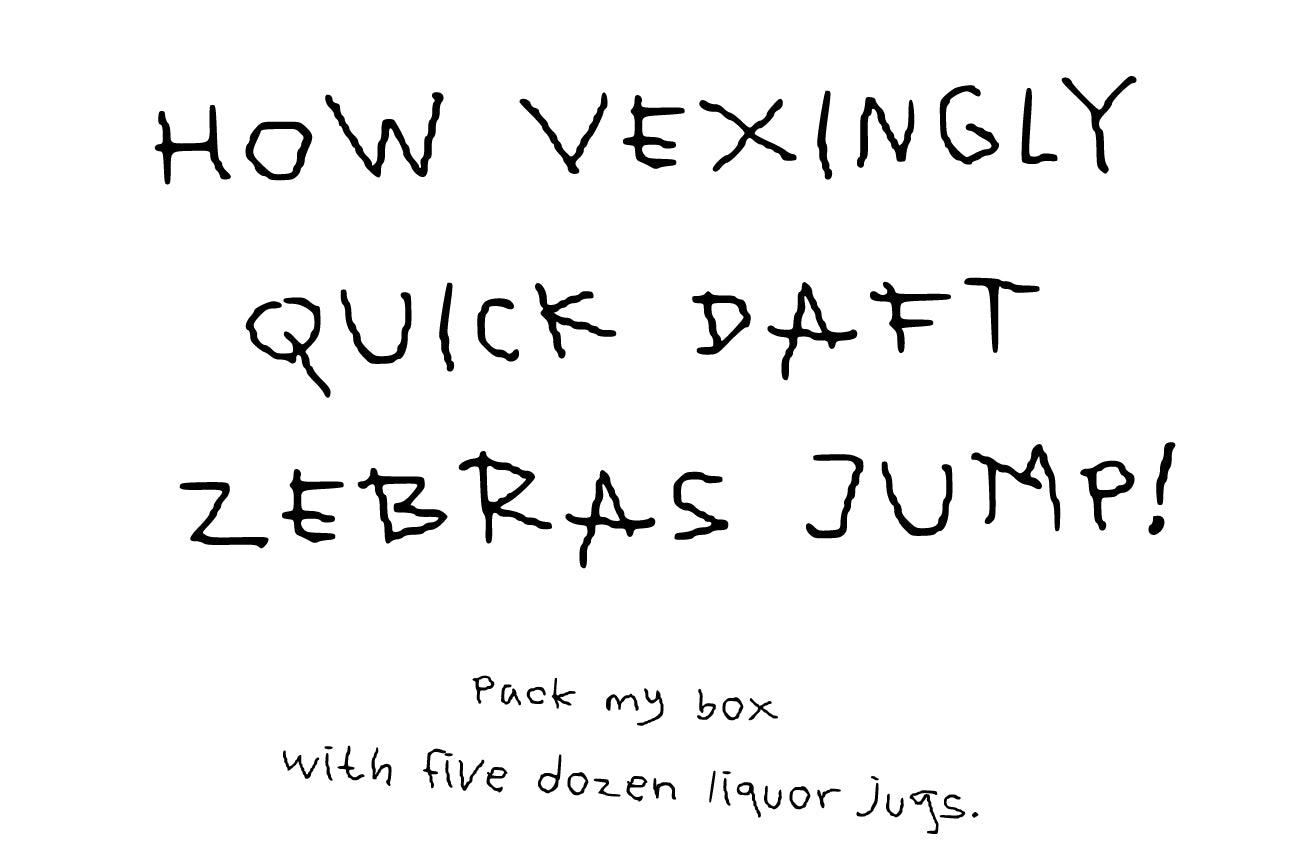 HOW VEXINGLY
QUICK DAFT
ZEBRAS JUMP!
Pack my box
with five dozen liquor jugs.